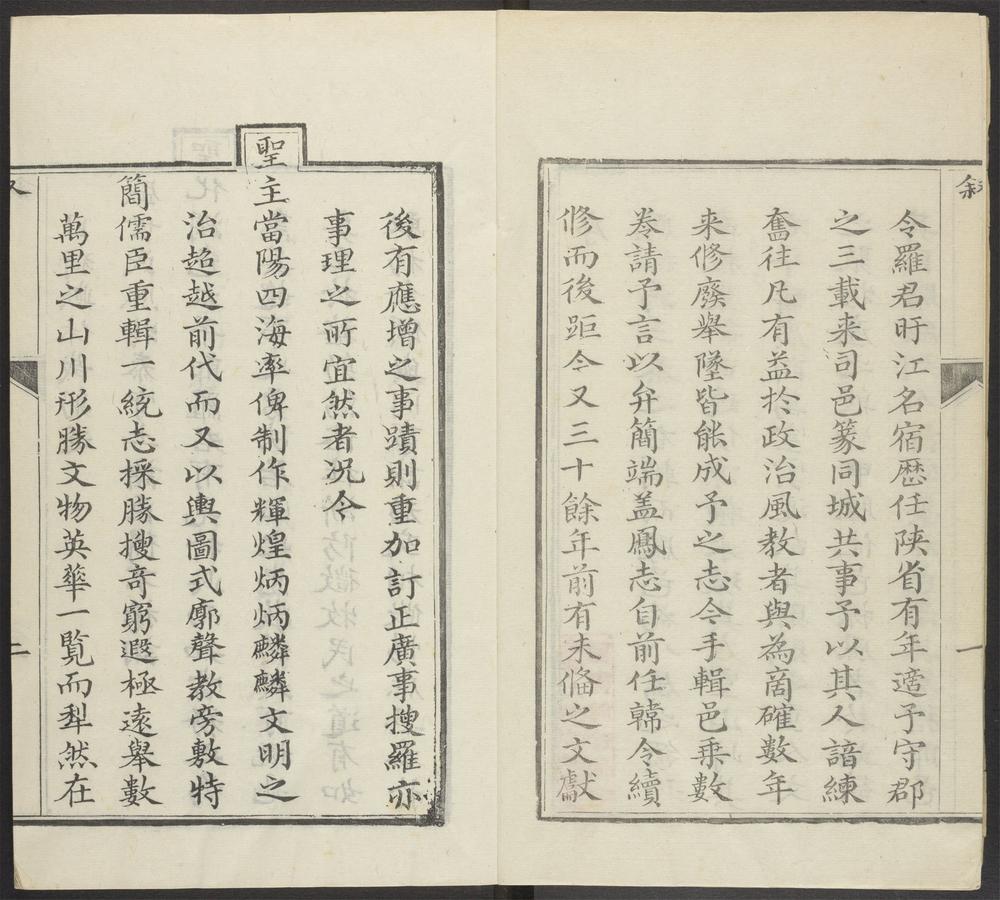 叙
一
令羅君盱江名宿歷任陕省有年適予守郡
之三載来司邑篆同城共事予以其人諳練
奮往凡有益於政治風教者與為啇確數年
来修廢舉墜皆能成予之志今手輯邑乗數
卷請予言以弁簡端盖鳳志自前任韓令續
修而後距今又三十餘年前有未俻之文獻
後有應增之事蹟則重加訂正廣事搜羅亦
事理之所宜然者况今
聖主當陽四海率俾制作輝煌炳炳麟麟文明之
治超越前代而又以輿圖式廓聲教旁敷特
簡儒臣重輯一統志採勝搜奇窮遐極遠舉數
萬里之山川形勝文物英華一覧而犁然在
二